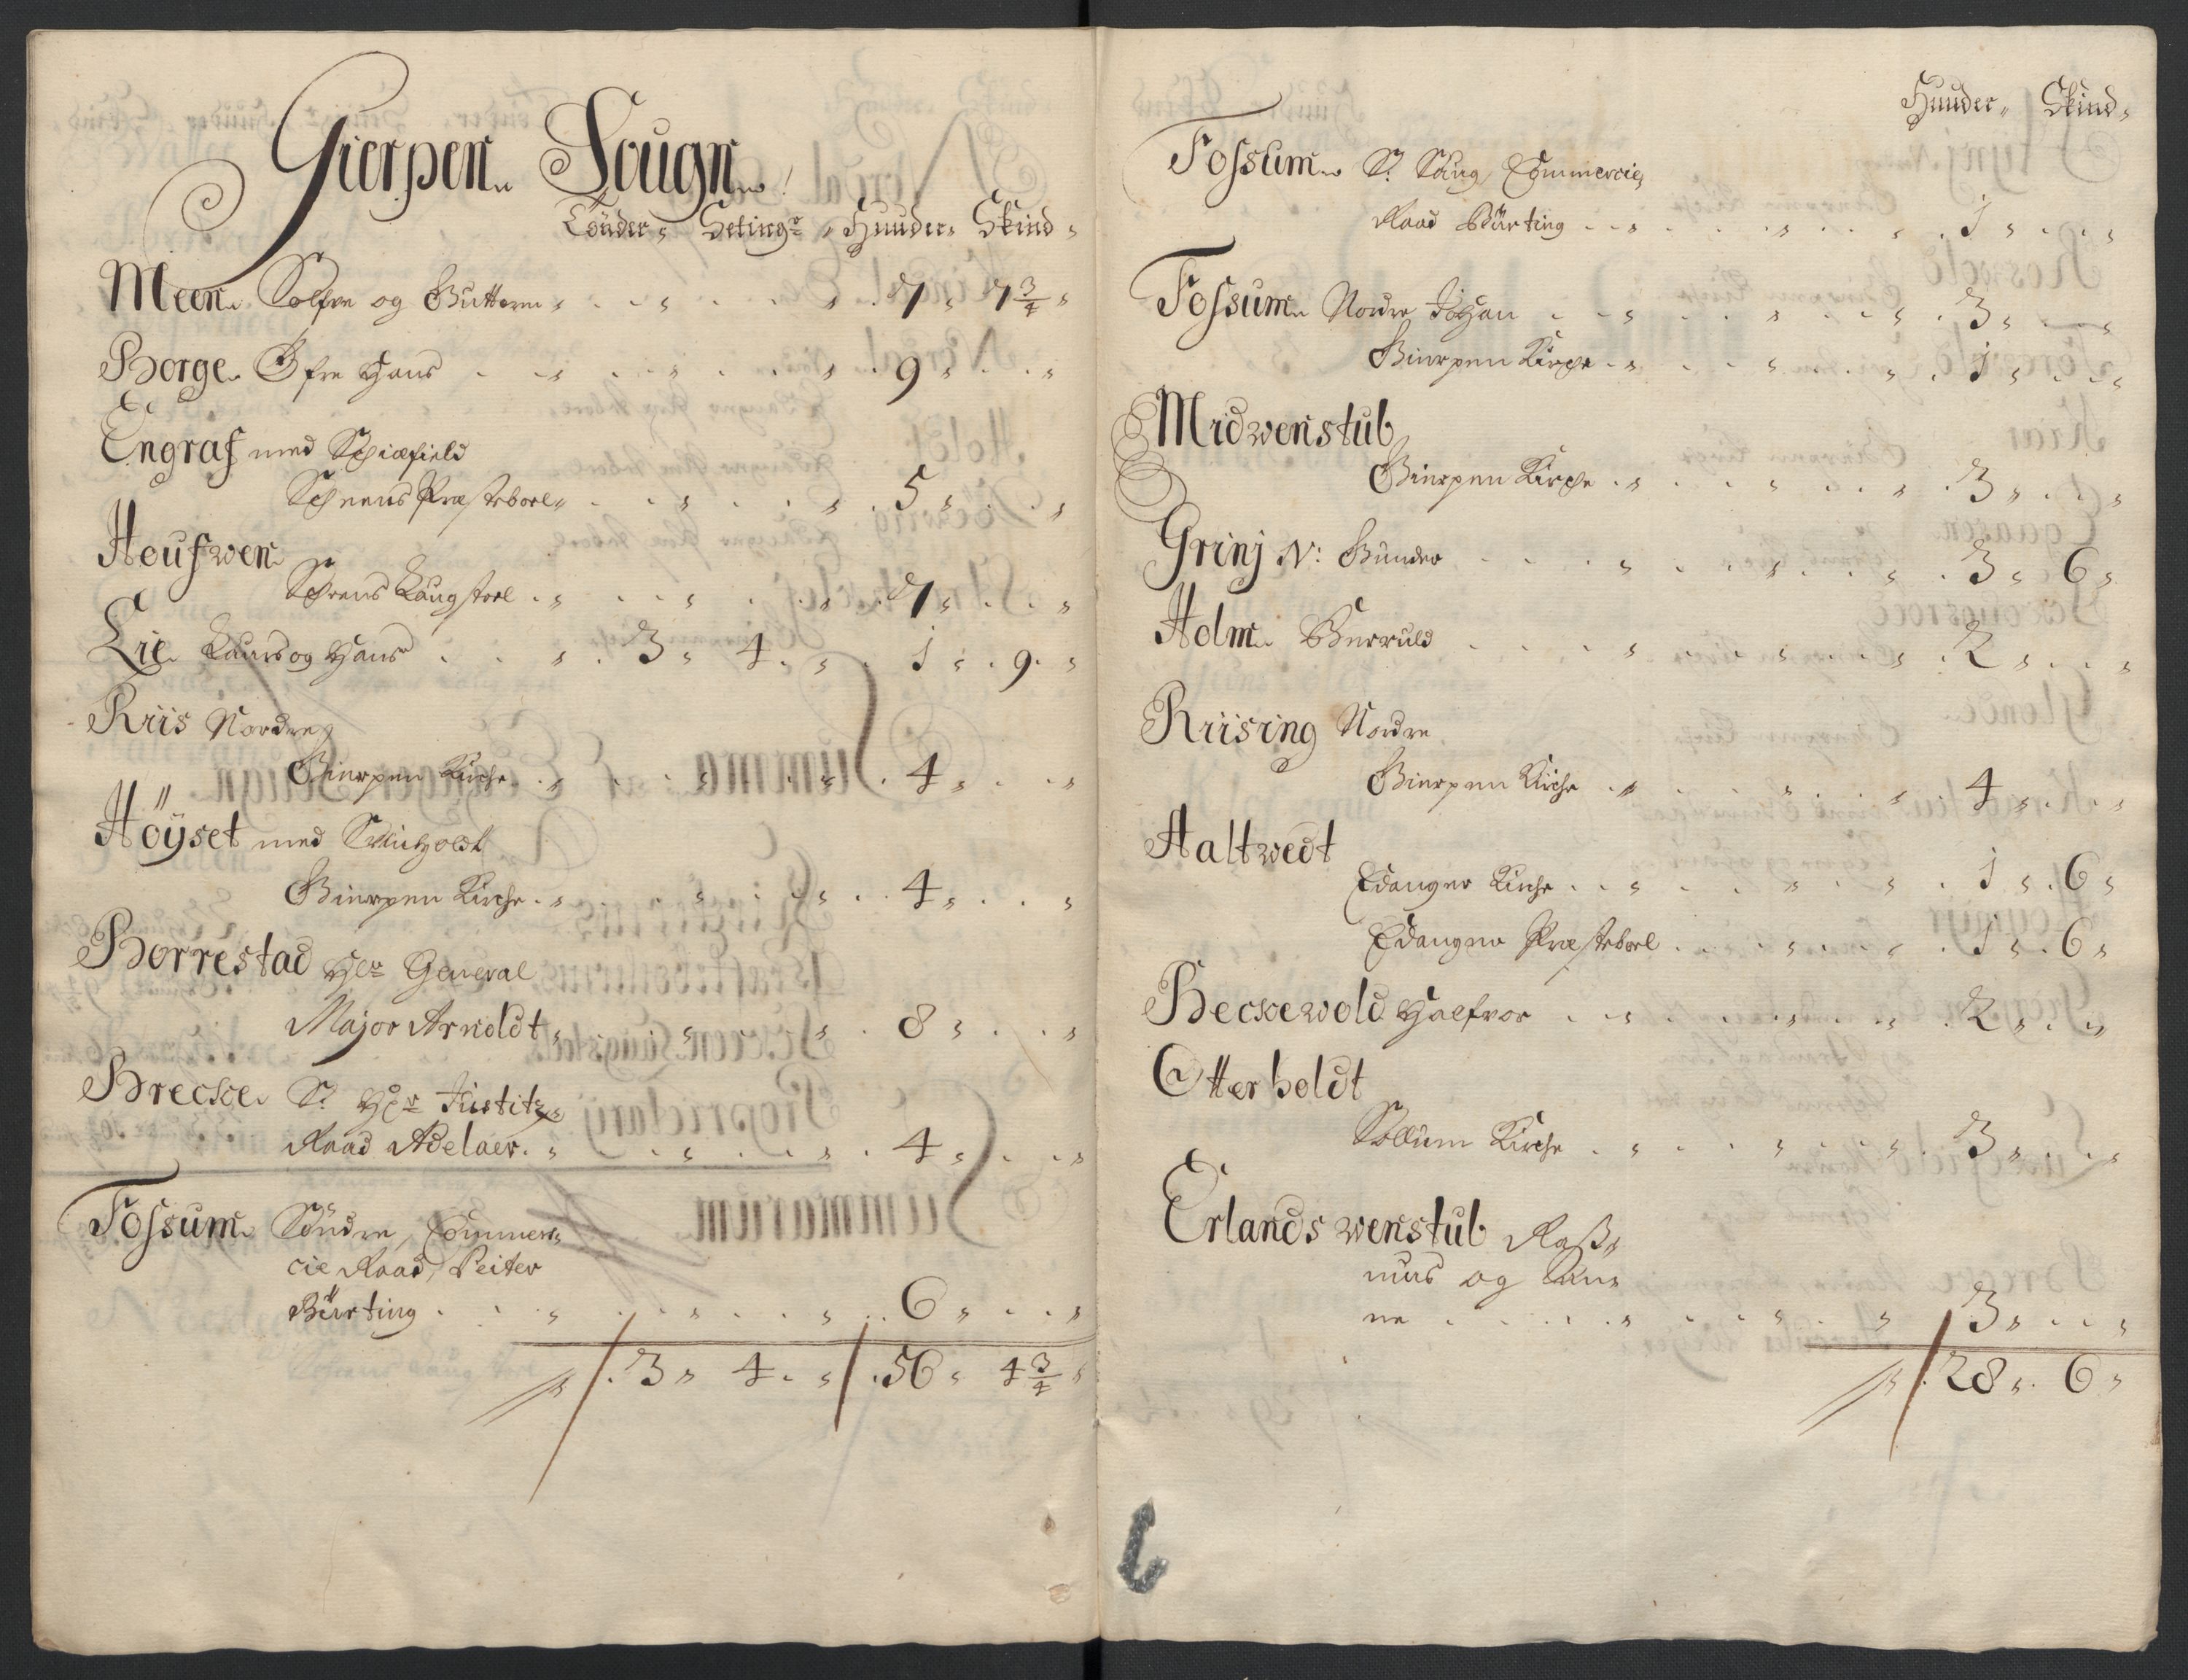 Gierpen Sougn
Tönder Setinger Huuder Skind
Meen Solfve og Guttorm 7 7 3/4
Borge Öfre Hans 9
Engraf med Schiefield
Scheens Præsteboel 5
Houfwen
Schens Laugstoel 7
Lie Laurs og Hans 3 4 1 9
Riis Nordre
Gierpen Kirche 4
Höÿset med
Gierpen Kirche 4
Borrestad Hr General
Major Arnoldt 8
Brecke S: Hr Justitz
Raad Adelaer 4
Fossum Söndre, Commer
cie Raad, Peiter
Börting 6
3 4 56 4 3/4
Huuder Skind
Fossum S: Saug, Commercie
Raad Börting 1
Fossum Nordre Johan 3
Gierpen Kirche 1
Midwenstub
Gierpen Kirche 3
Grinj N: Gunder 3 6
Holm Gerruld 2
Riising Nordre
Gierpen Kirche 4
Aaltwedt
Edanger Kirche 1 6
Edanger Præsteboel 1 6
Beckewold Halfvor 2
Otterholdt
Sollum Kirche 3
Erlandswenstub Rass
mus og Sun
ne 3
28 6